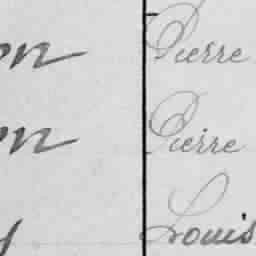 on Pierre
on Pierre
y Louis